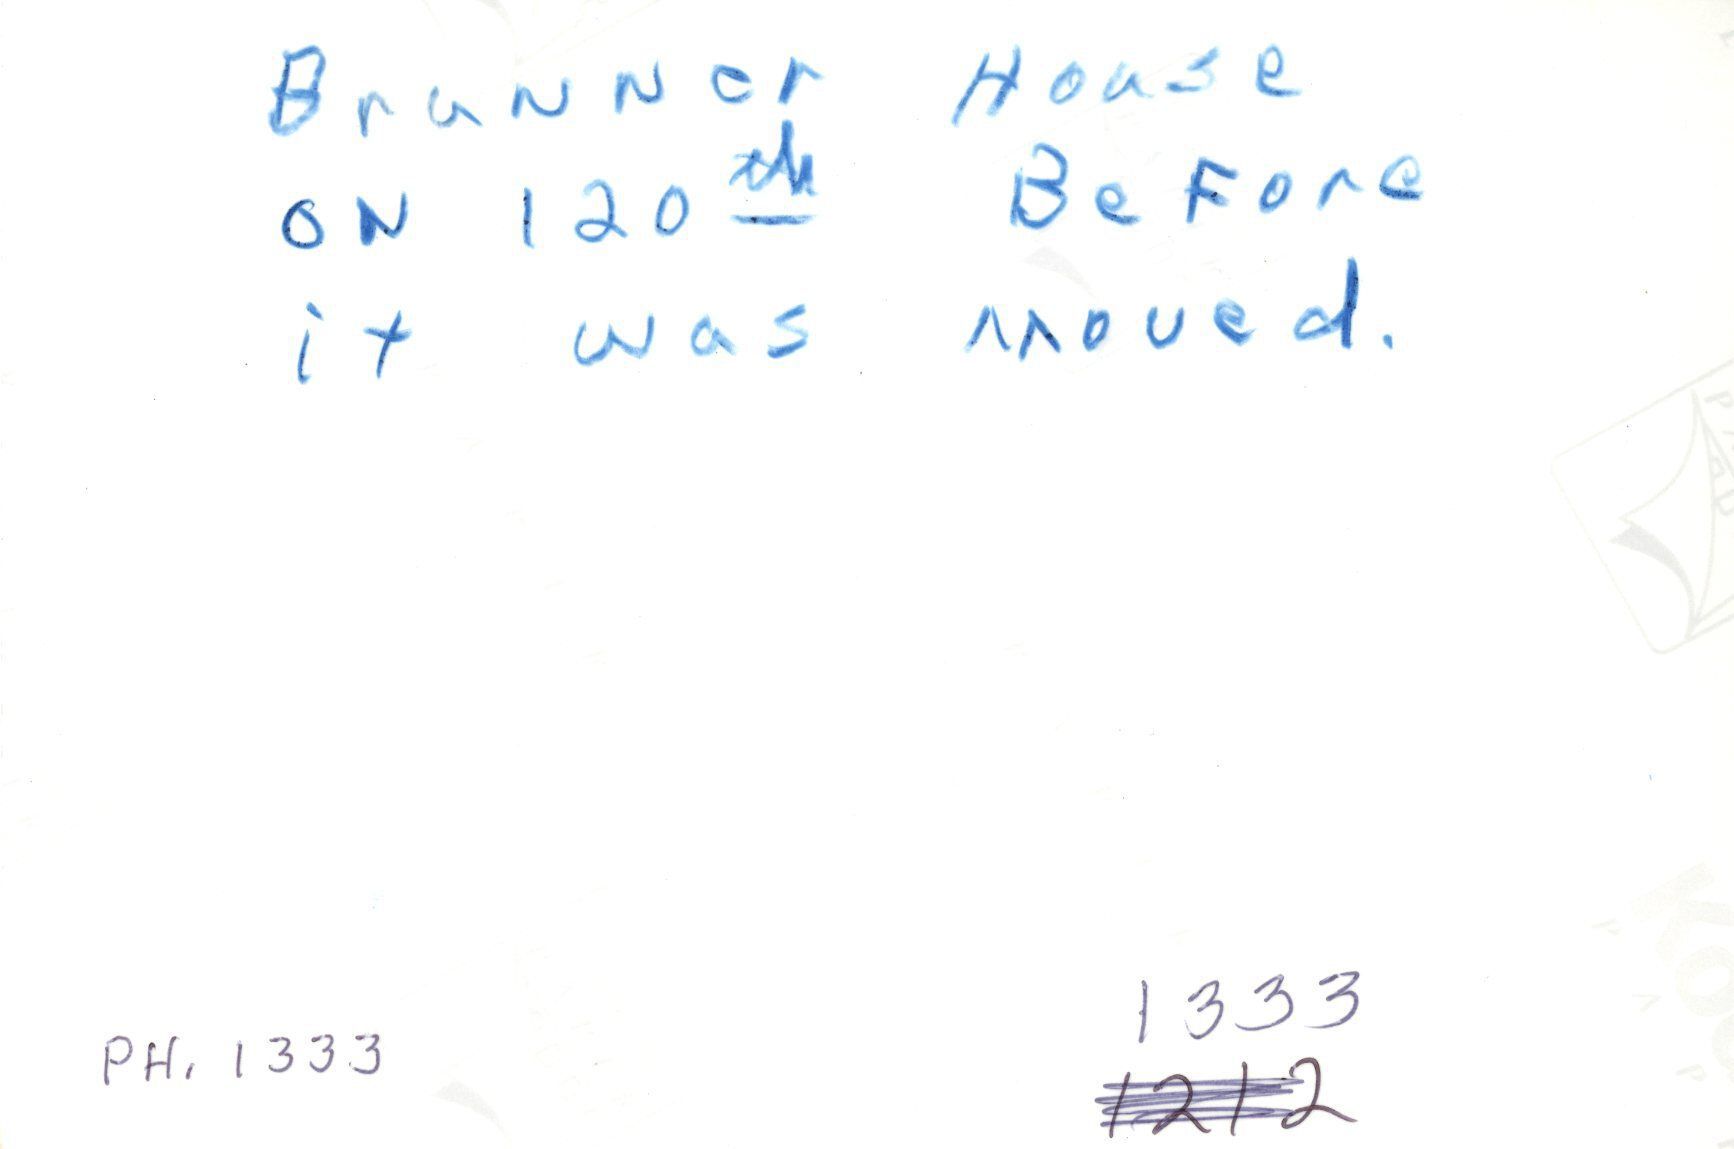 Brunner House
ON 120th BeFore
it was moved.
1333
PH. 1333
1212